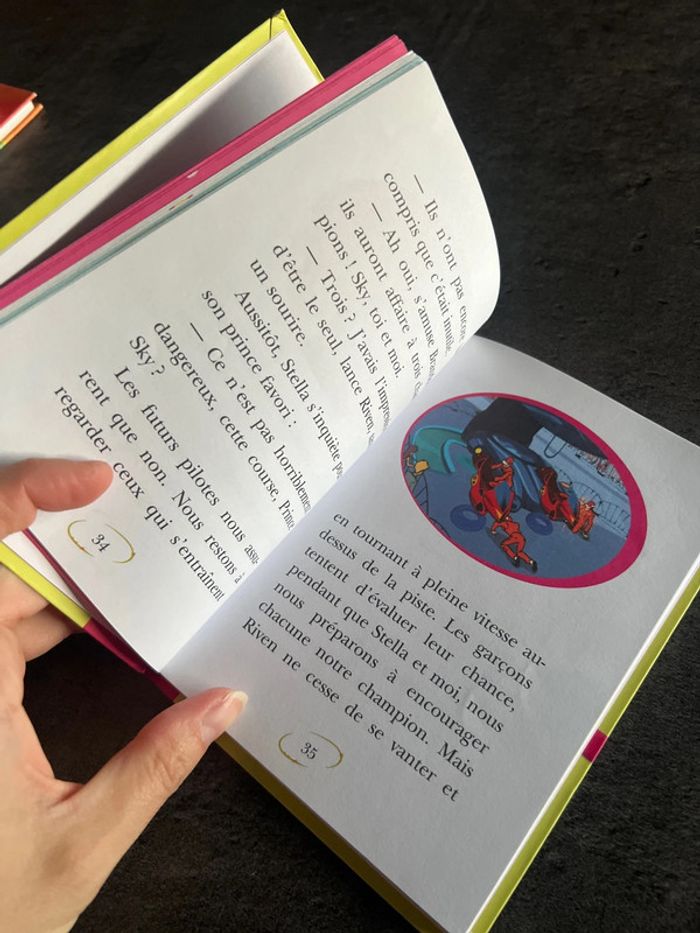 — Ils n'ont pas encore
compris que c'était inutile.
— Ah oui, s'amuse
ils auront affaire à trois
pions ! Sky, toi et moi.
— Trois ? J'avais
d'être le seul, lance Riven,
un sourire.
Aussitôt, Stella s'inquiète
son prince favori :
— Ce n'est pas
dangereux, cette course, Prince
Sky ?
Les futurs pilotes nous
rent que non. Nous restons à
regarder ceux qui s'entraînent
34
en tournant à pleine vitesse au-
dessus de la piste. Les garçons
tentent d'évaluer leur chance,
pendant que Stella et moi, nous
nous préparons à encourager
chacune notre champion. Mais
Riven ne cesse de se vanter et
35